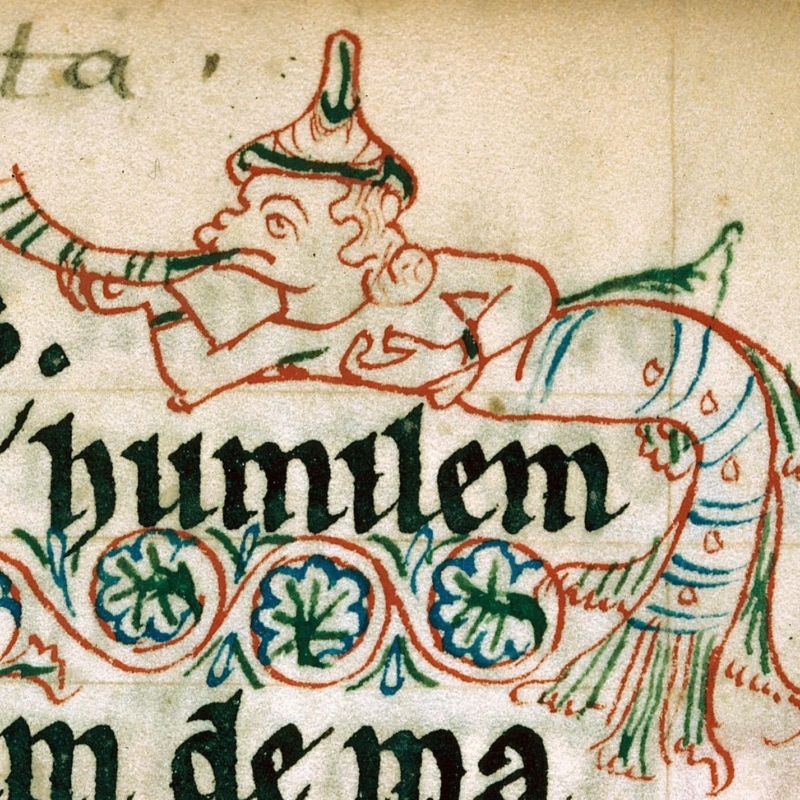 ta .
. humilem
m de ma